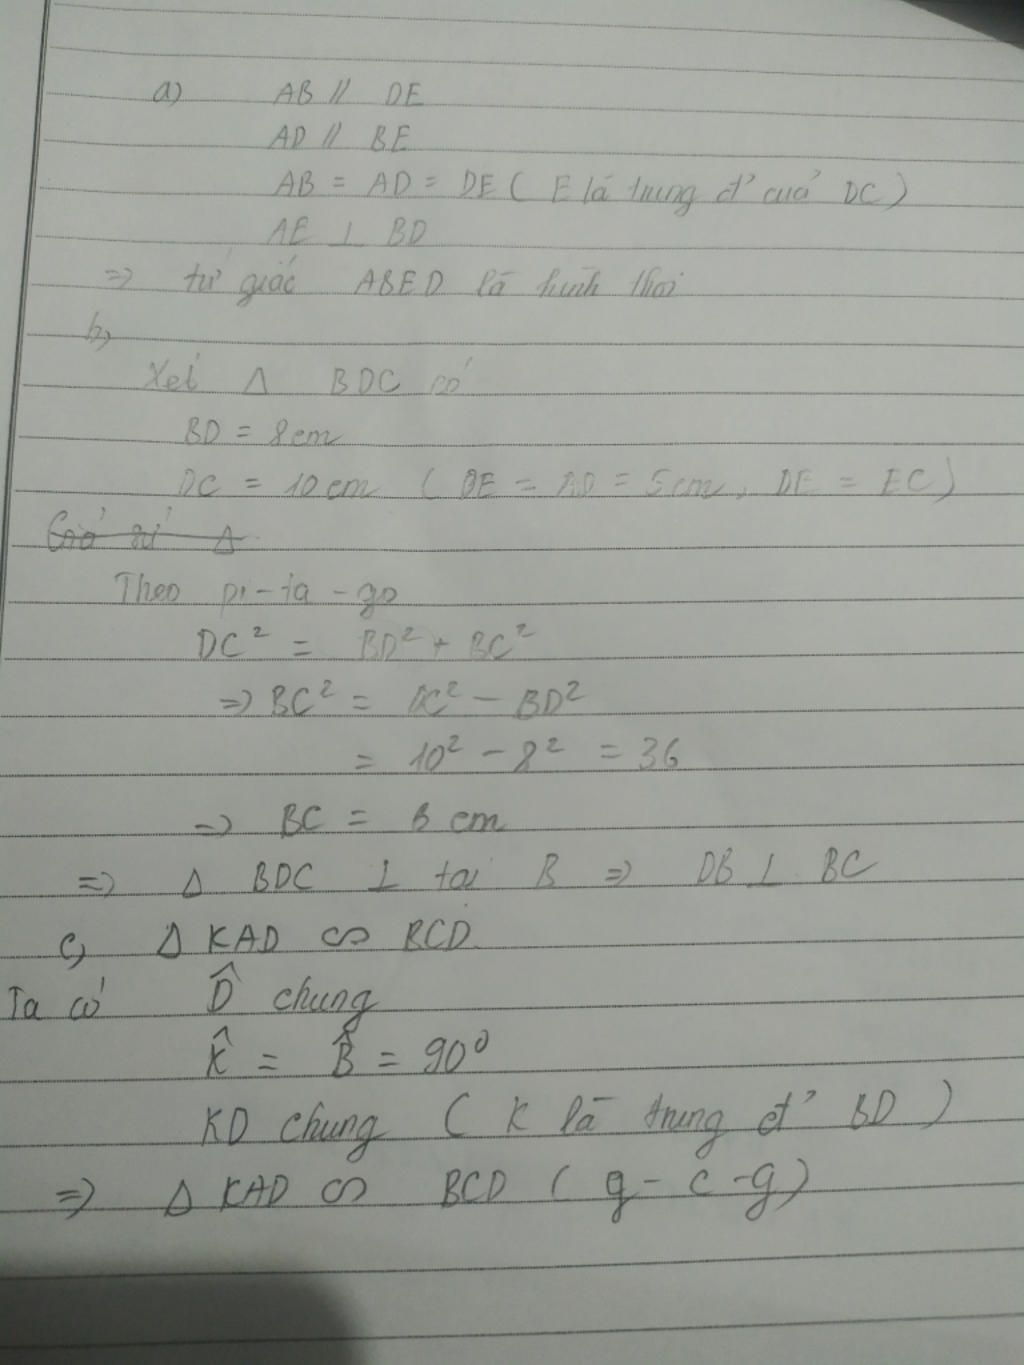 a) AB // DE
AD // BE
AB = AD = DE ( E là trung đ' cuả DC )
AE ⊥ BD
=> tứ giác ABED là hình thoi
b,
Xét Δ BDC có
BD = 8cm
DC = 10 cm ( DE = AD = 5cm, DE = EC )
Giả sử Δ
Theo pi-ta-go
DC² = BD² + BC²
=> BC² = DC² - BD²
= 10² - 8² = 36
=> BC = 6 cm
=> Δ BDC ⊥ tại B => DB ⊥ BC
c, Δ KAD ∽ BCD
Ta có D̂ chung
K̂ = B̂ = 90⁰
KD chung ( K là trung đ' BD )
=> Δ KAD ∽ BCD ( g - c - g )